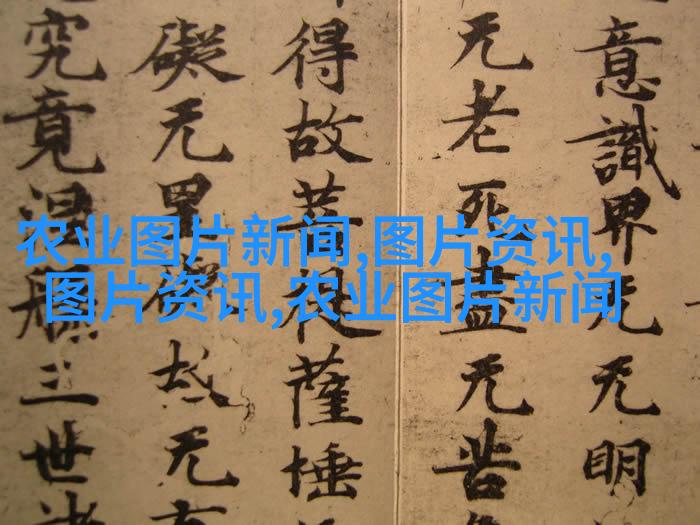 意識界无无明
无老死盡无苦
得故菩提薩埵
礙无罣礙故无有
究竟涅槃三世諸
农业图片新闻,图片资讯,
图片资讯,农业图片新闻